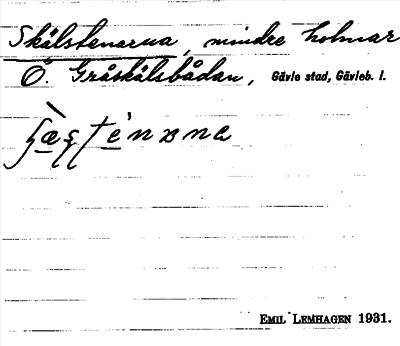 Skälstenarna, mindre holmar
Ö. Gråskälsbådan, Gävle stad, Gävleb. l.
EMIL LEMHAGEN 1931.